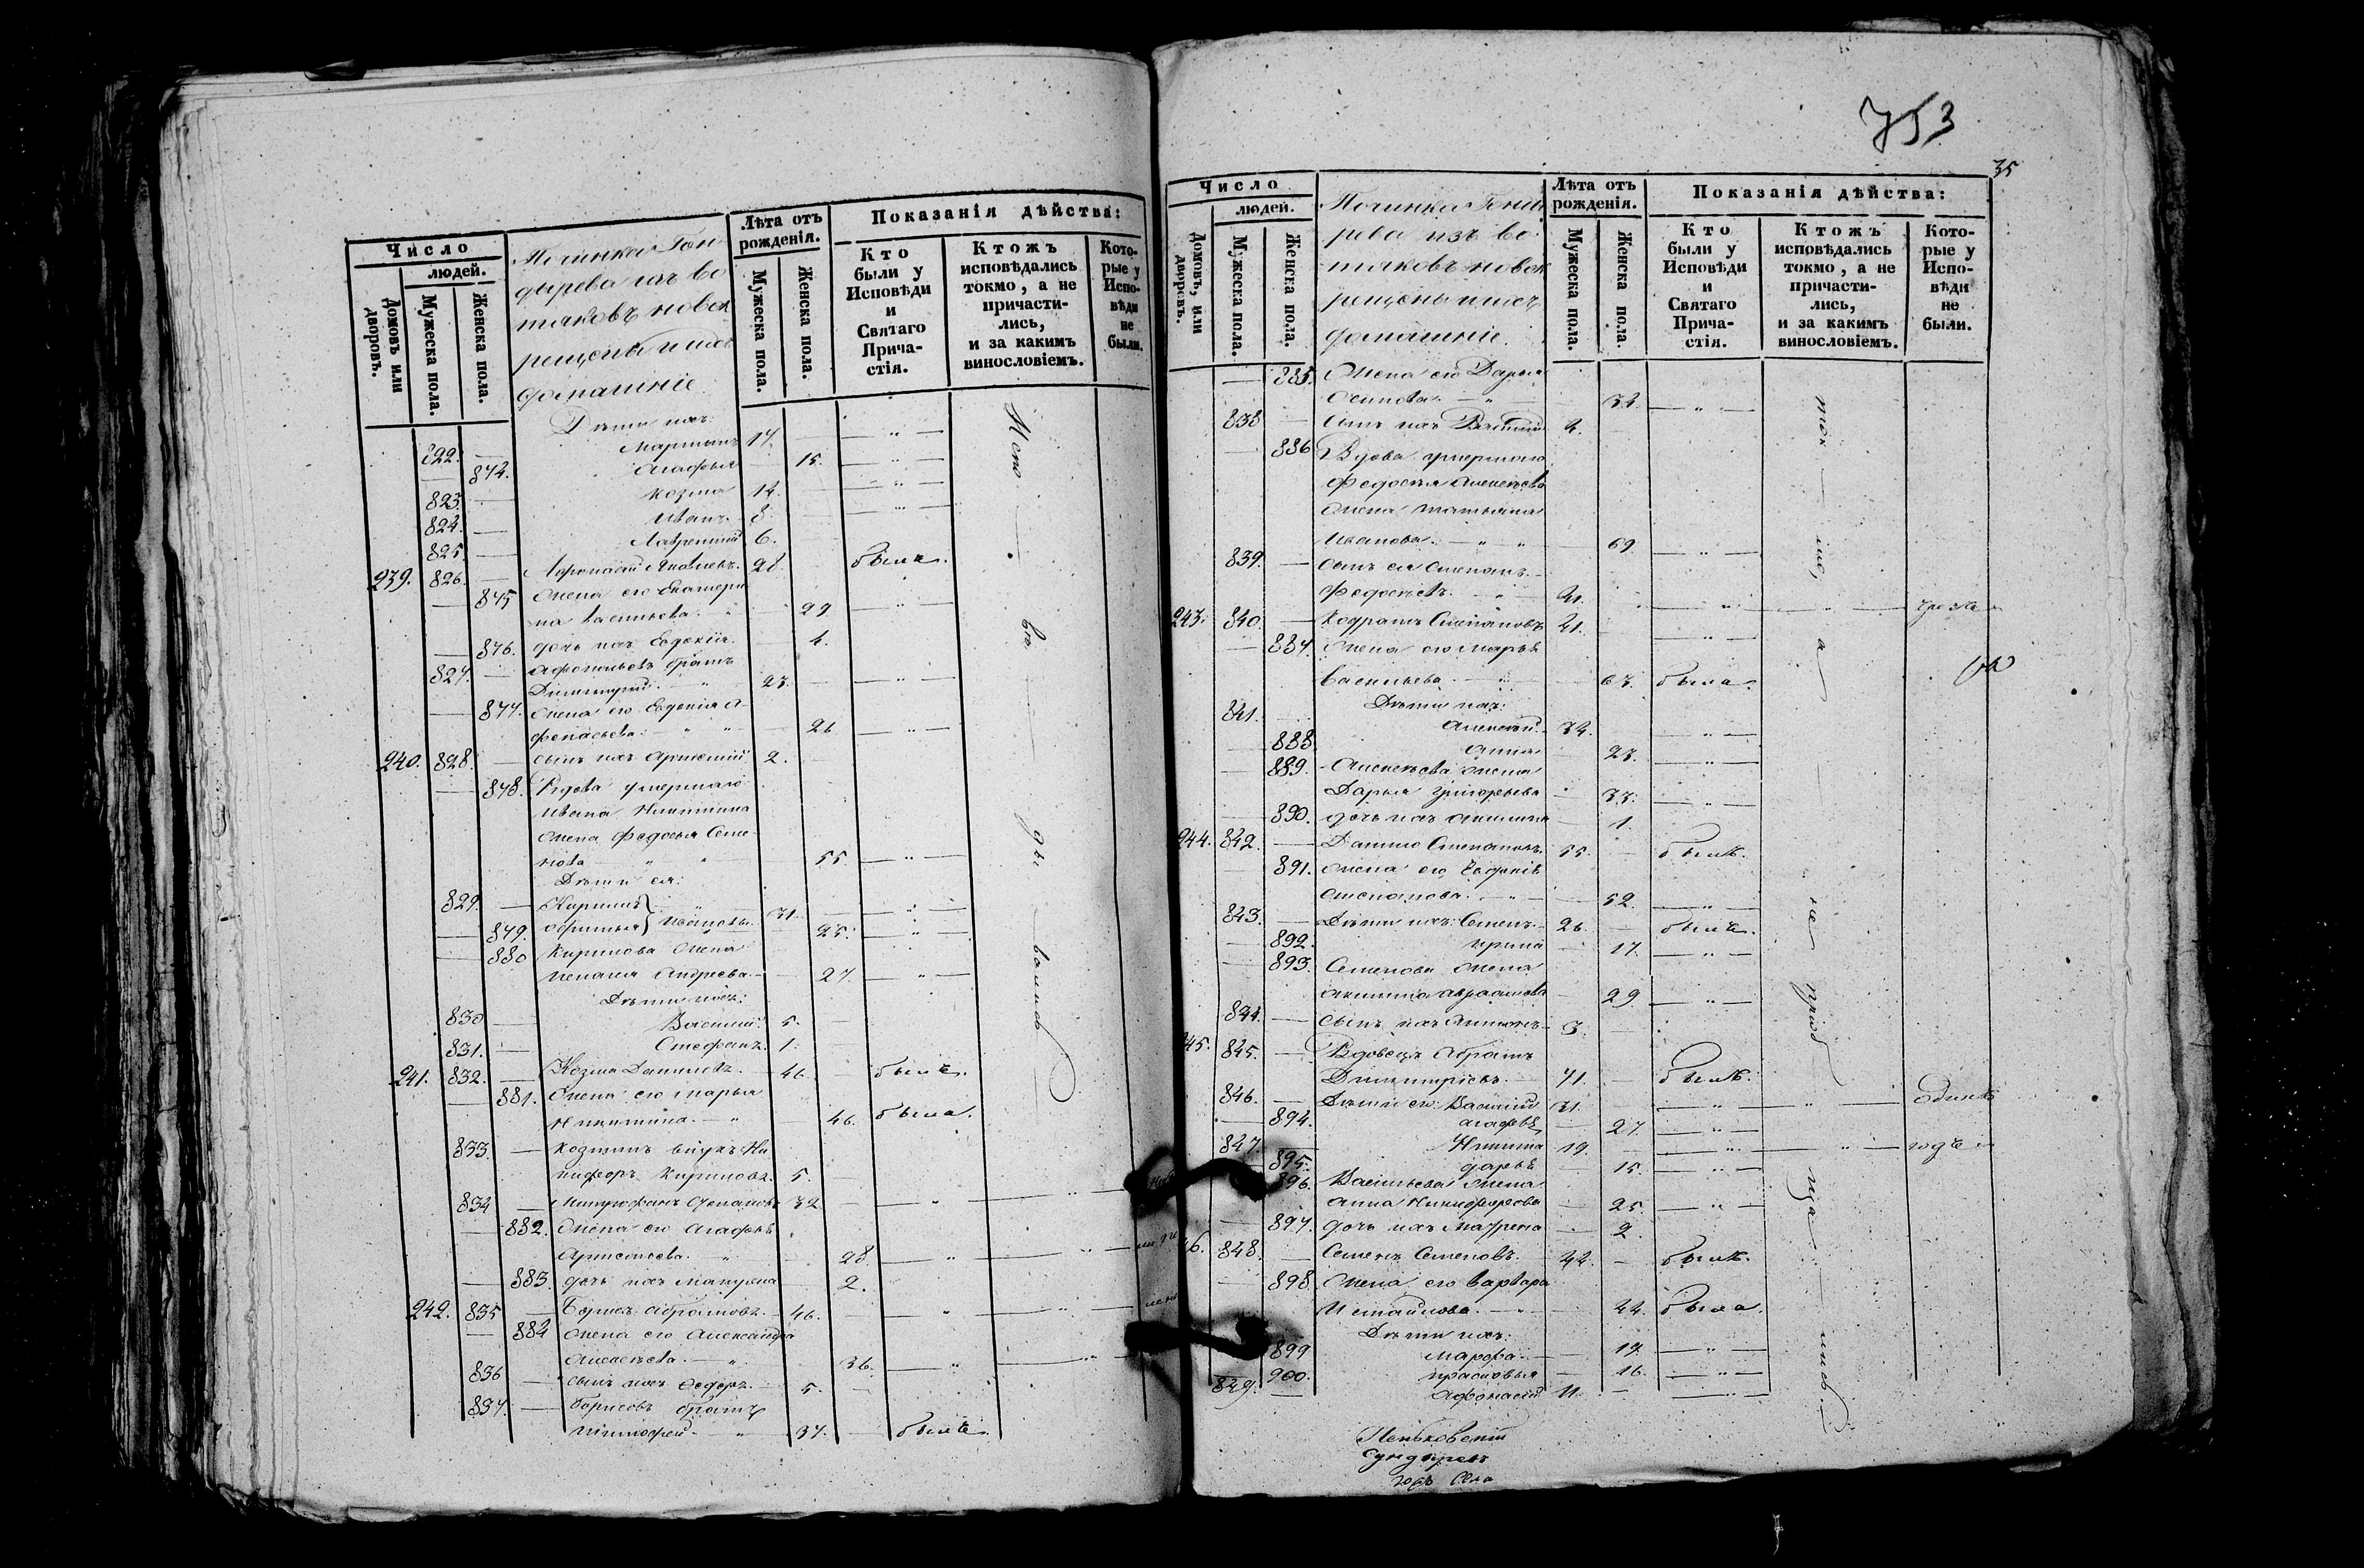 Число
людей.
Домовъ или дворовъ.
Мужеска пола.
Женска пола.
Починка Гон
дырева изъ во
тяковъ новок
рещеныи ихъ
домашніе
Лѣта отъ рожденія.
Мужеска пола.
Женска пола.
Показанія дѣйства:
Кто были у Исповѣди и Святаго Прича-стія.
Ктожъ исповѣдались токмо, а не причасти-лись, и за какимъ винословіемъ.
Кото-рые у Испо-вѣди не были.
Дѣти ихъ:
822. — Мартынъ 17. — „ —
— 874. Агафья — 15. — „ —
823. — Козма 12. — „ —
824. — Иванъ 8. — „ —
825. — Лаврентий 6.
239. 826. — Афонасий Яковлевъ. 28. былъ.
— 875 Жена его Екатери
на Васильева. „ — 29 — „ —
— 876. дочь ихъ Евдокія. — 4.
827. — Афонасьевъ братъ
Димитрий. „ 23. — „ —
— 877. Жена его Евдокія А-
фонасьева. „ „ — 26 — „ —
240. 828. — сынъ ихъ Артемий 2.
— 878. Вдова умершаго
Ивана Никитина
жена Федосья Семе-
нова „ „ 55. — „ —
Дѣти ея:
829. — Кирилъ „ 31. — „ —
— 879. Ивановы. 25. — „ —
— 880 Кирилова жена
Пелагея Андреева. — 27. — „ —
Дѣти ихъ:
830 — Василий. 5. —
831. — Стефанъ. 1. —
241. 832. — Козма Даниловъ. 46. — былъ.
— 881. Жена его Марья
Никитина. — „ — 46. была.
833. — Козминъ внукъ Ни
кифоръ Кириловъ. 5. —
834 — Митрофанъ 32 — „ — „ —
— 882. Жена его Агафья
„ — 28. „ — „ —
— 883. дочь ихъ — 2.
242. 835 — Борисъ Абрамовъ. 46. — „ — „ —
— 884 жена его Александра
Алексѣева. — „ 36. — „ — „ —
836 — сынъ ихъ Федоръ. 5. —
837. — Борисовъ братъ
Тимофей. „ 37. — былъ.
Испо — вѣ — ды — вались
753
35
Число
людей.
Домовъ, или дворовъ.
Мужеска пола.
Женска пола.
Починка Гонды
рева изъ во-
тяковъ новок
рещеныи ихъ
домашніе.
Лѣта отъ рожденія.
Мужеска пола.
Женска пола.
Показанія дѣйства:
Кто были у Исповѣди и Святаго Прича-стія.
Ктожъ исповѣдались токмо, а не причасти-лись, и за какимъ винословіемъ.
Кото-рые у Испо-вѣди не были.
— 885. Жена его Дарья
Осипова. — „ — 32. — „ —
838 — Сынъ ихъ Василий 2.
— 886 Вдова умершаго
Федосѣя Алексѣева
жена Татьяна
Иванова. — „ „ — 69. — „ —
839. — сынъ ея Степанъ.
Федосѣевъ. — „ — 21. — „ — „ —
243. 840. — Кодратъ Степановъ 21. — „ —
— 887. Жена его Марья
Васильева — „ — 63. была.
Дѣти ихъ:
841. — Алексѣй. 32. — „ —
— 888. Анна — 23. — „ —
— 889. Алексѣева жена
Дарья Григорьева — 33. — „ —
— 890. дочь ихъ Акилина — 1.
244. 842. — Данило Степановъ. 55. — былъ.
— 891. Жена его Евдокія
Степанова. „ — 52. — „ —
843. — Дѣти ихъ: Семенъ. 26. — былъ.
— 892. Ирина — 17. — „ —
— 893. Семенова жена
Акилина Авраамова — 29. — „ —
844. — Сынъ ихъ 3. —
245. 845. — Вдовецъ Абрамъ
Димитріевъ. — 71. — былъ.
846. — Дѣти его: Василий 31. — „ — „ —
— 894. Агафья — 27. — „ —
847. — Никита 19. — „ — „ —
895. Дарья — 15. — „ —
896. Васильева жена
Анна Никифорова — 25. — „ —
— 897. дочь ихъ Матрена — 2.
46. 848. — Семенъ Семеновъ. 42. — былъ.
— 898. Жена его Варвара
Измайлова. — „ — 44. была.
Дѣти ихъ:
899 Марфа. — 19. — „ —
900. Прасковья — 16. — „ —
849. — Афонасий 11. — „ —
так — же, а — не — прiоб — ща — лись.